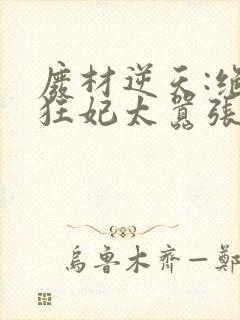 廢材逆天:絕
狂妃太囂張
烏魯木齊—鄭